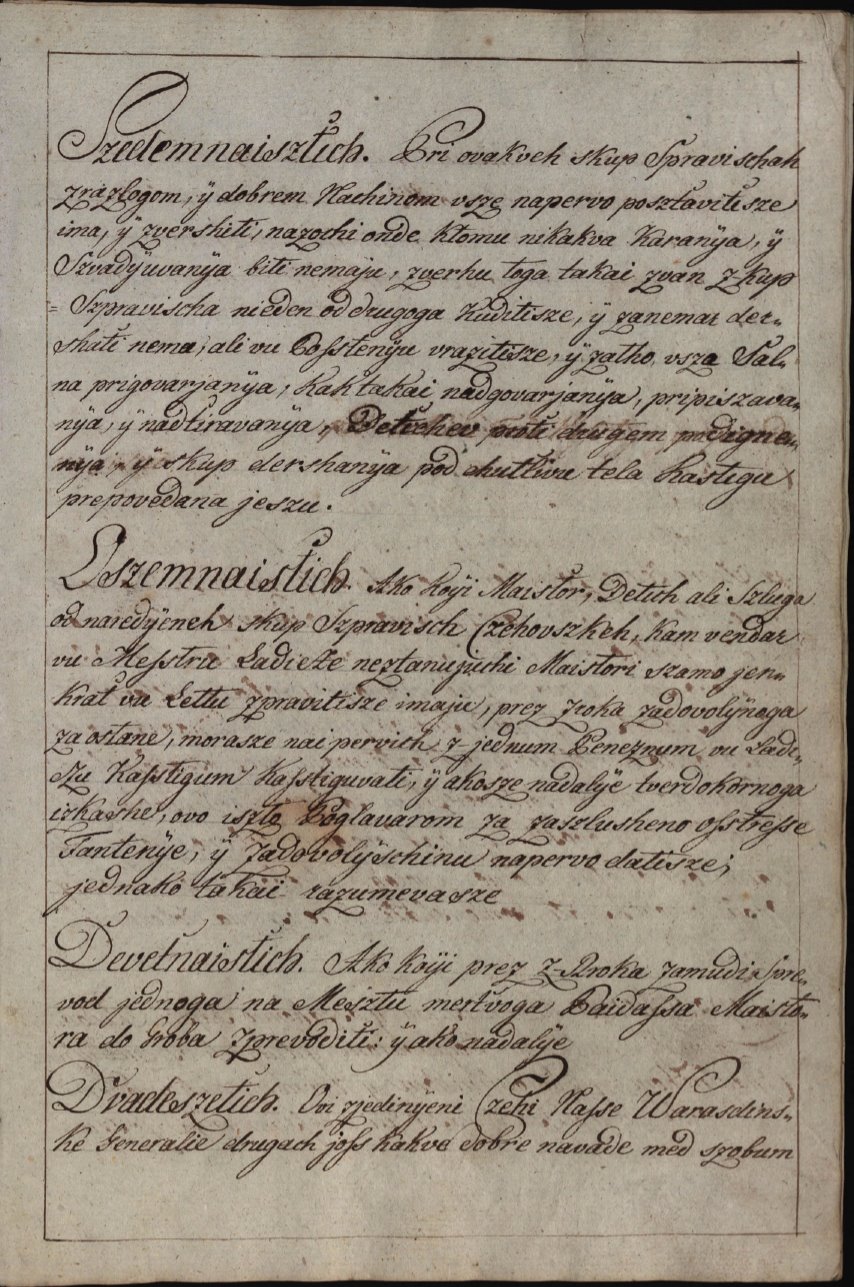 Szedemnaisztich. Pri ovakveh skup Spravischah
zrazlogom, ÿ dobrem Nachinom vsze napervo posztavitisze
ima, ÿ zvershiti, nazochi onde ktomu nikakva Karanÿa, ÿ
Szvadÿuvanÿa biti nemaju, zverhu toga takai zvan Zkup
= Szpravischa nieden od drugoga Kuditisze, ÿ zanemar der„
shati nema, ali vu Posstenÿu vrazitisze, ÿ zatho vsza Sal„
na prigovarjanÿa, kaktakai nadgovarjanÿa, pripiszava„
nÿa, ÿ nadtiravanÿa, Detichev proti drugem podigna„
nÿa, ÿ skup dershanÿa pod chutlivu tela Kastigu
prepovedana jeszu.
Oszemnaistich. Ako koÿi Maistor, Detich ali Szluga
od naredÿeneh skup Szpravisch Czehovszkeh, kam vendar
vu Messtru Ladicze nesztanujuchi Maistori szamo jen„
krat vu Lettu zpravitisze imaju, prez Zroka zadovolÿnoga
za ostane, morasze nai pervich z jednum Peneznum vu Ladi„
czu Kasstigum Kasstiguvati, ÿ akosze nadalÿe tverdokornoga
izkashe, ovo iszto Poglavarom za zaszlusheno osstresse
Fantenÿe, ÿ Zadovolÿschinu napervo datisze;
jednako takai razumevasze
Devetnaistich. Ako koÿi prez Z-Uroka zamudi, Spre„
vod jednoga na Mesztu mertvoga Paidassa Maisto„
ra do Groba zprevoditi: ÿ ako nadalÿe
Dvadeszetich. Ovi zjedinÿeni Czehi Nasse Warasdins„
ke Generalie drugach joss kakve dobre navade med szobum